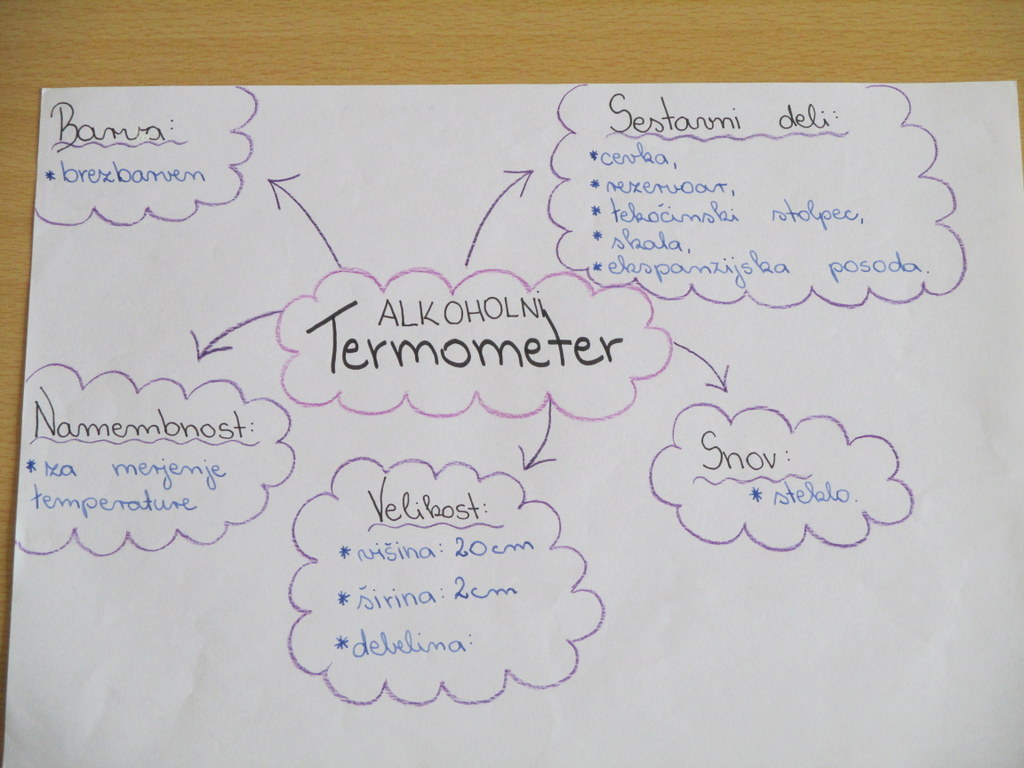 Barva:
* brezbarven
Sestavni deli:
* cevka,
* rezervoar,
* tekočinski stolpec,
* skala,
* ekspanzijska posoda.
ALKOHOLNI
Termometer
Namembnost:
* za merjenje
temperature
Velikost:
* višina: 20 cm
* širina: 2 cm
* debelina:
Snov:
* steklo.